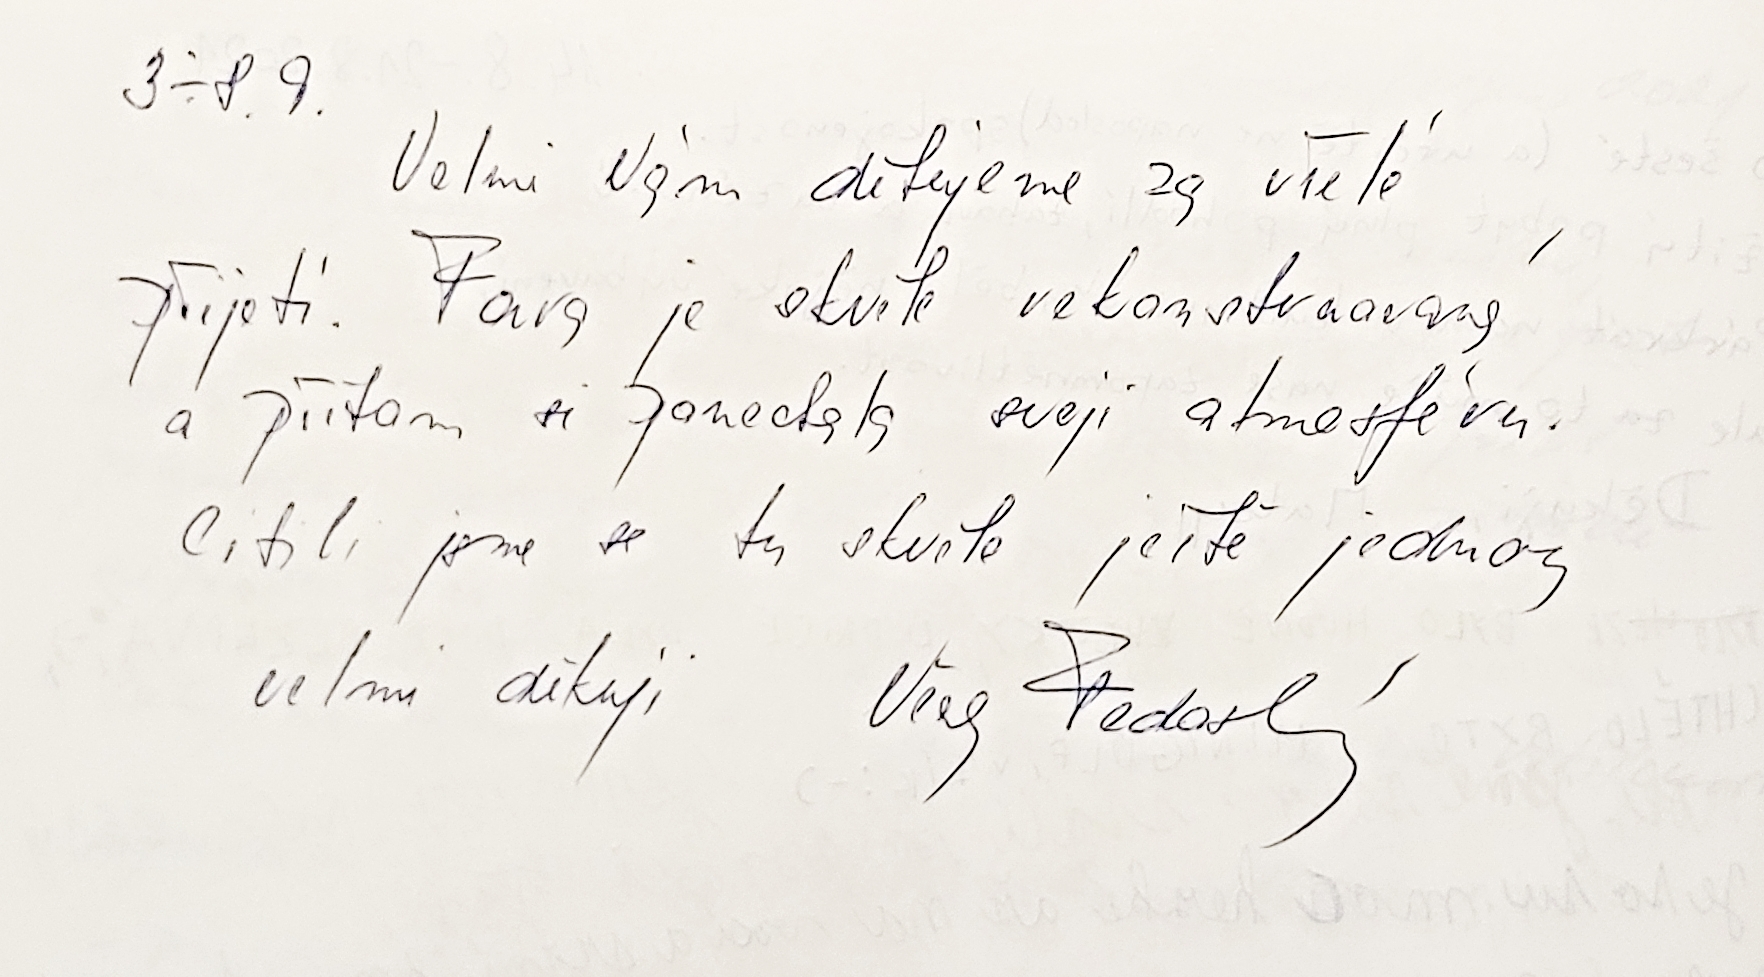 3÷8.9.
Velmi Vám děkujeme za vřelé
přijetí. Fara je skvěle rekonstruovaná
a přitom si ponechala svoji atmosféru.
Cítili jsme se tu skvěle ještě jednou
velmi děkuji Věra